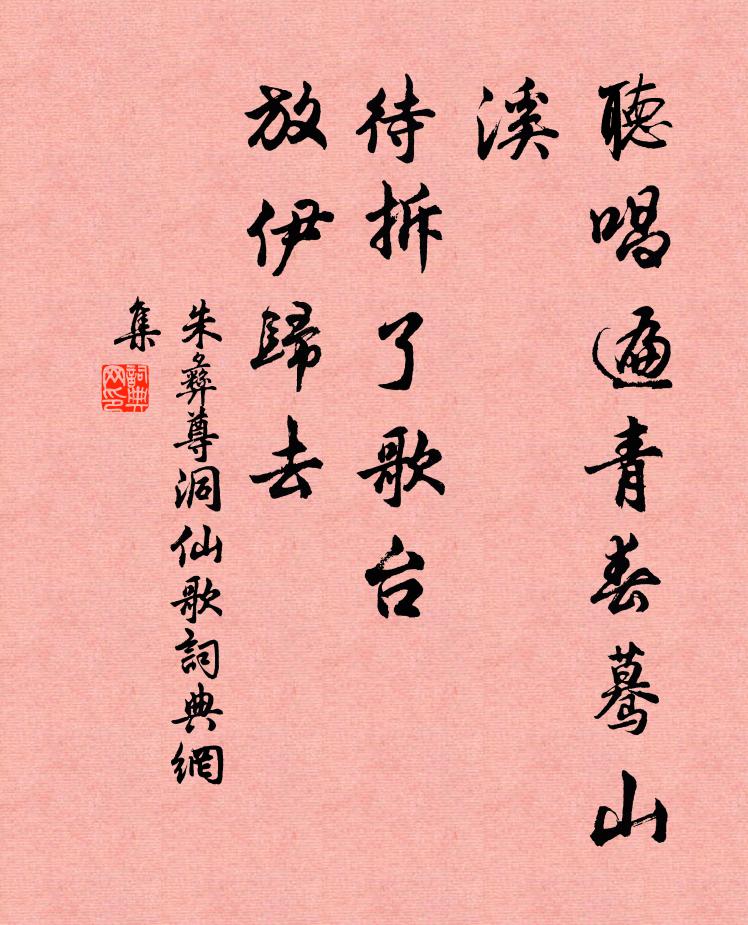 聽唱遍青春驀山
溪
待拆了歌台
放伊歸去
朱彝尊洞仙歌詞典網
集
詞典網印